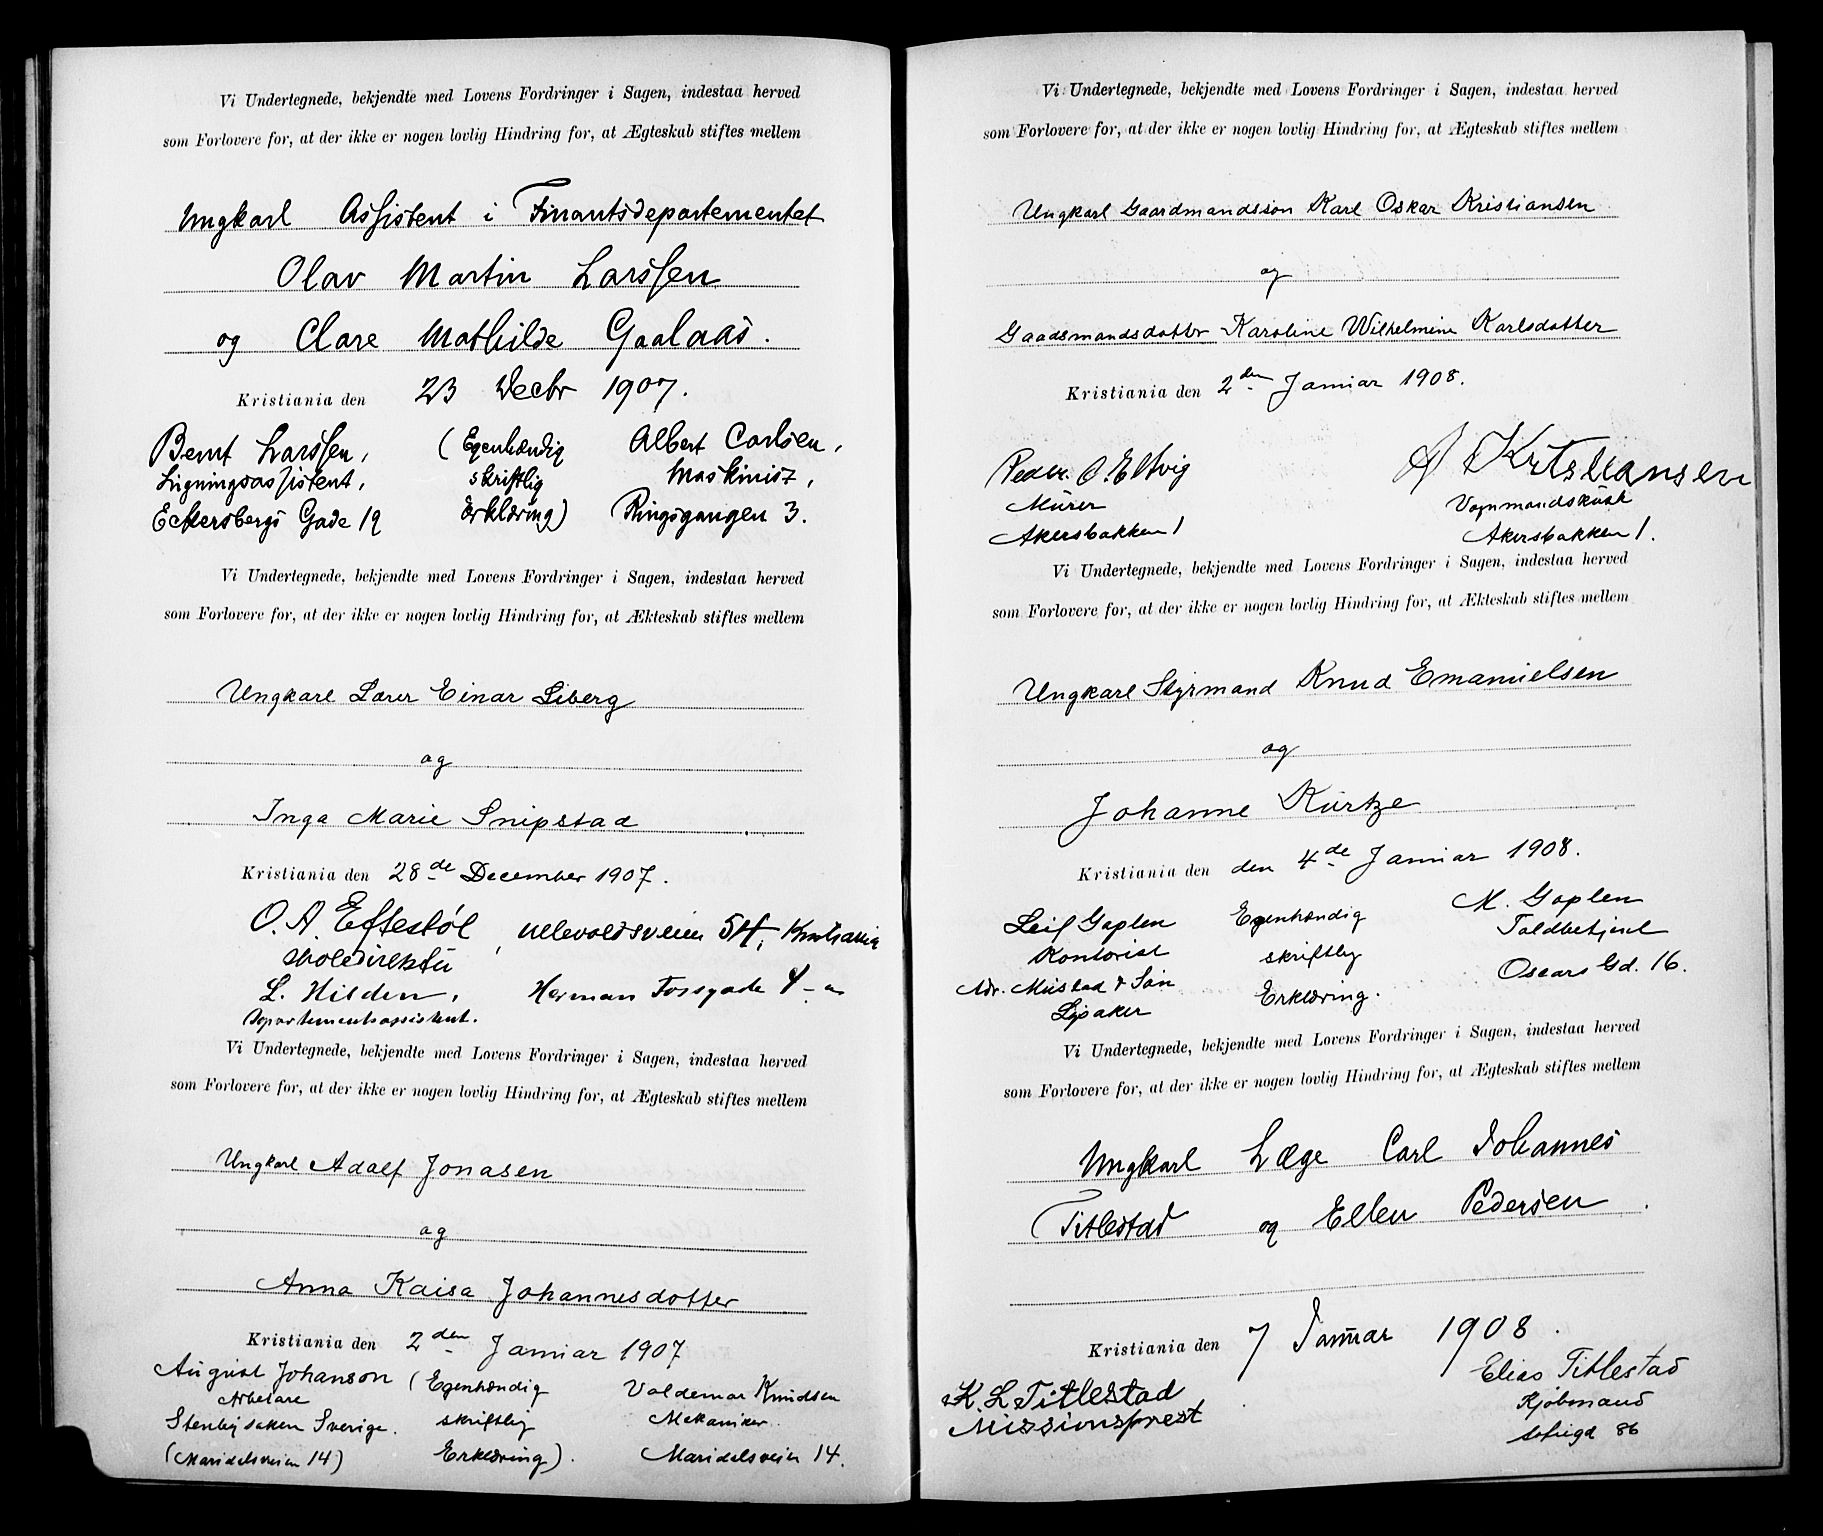 Vi Undertegnede, bekjendte med Lovens Fordringer i Sagen, indestaa herved
som Forlovere for, at der ikke er nogen lovlig Hindring for, at Ægteskab stiftes mellem
Ungkarl Assistent i Finantsdepartementet
Olav Martin Larssen
og Clare Mathilde Gaalaas.
Kristiania den 23 Decbr 1907.
Bernt Larssen, (Egenhændig Albert Carlsen,
Ligningsassistent, skriftlig Maskinist,
Eckersbergs Gade 19 Erklæring) Ringsgangen 3.
Vi Undertegnede, bekjendte med Lovens Fordringer i Sagen, indestaa herved
som Forlovere for, at der ikke er nogen lovlig Hindring for, at Ækteskab stiftes mellem
Ungkarl Lærer Einar Liberg
og
Inga Marie Snipstad
Kristiania den 28de December 1907.
O. A. Eftestøl, Ullevoldsveien 54, Kristiania
skoledirektør
L. Hilden, Herman Fossgade 4
Departementsassistent.
Vi Undertegnede, bekjendte med Lovens Fordringer i Sagen, indestaa herved
som Forlovere for, at der ikke er nogen lovlig Hindring for, at Ægteskab stiftes mellem
Ungkarl Adolf Jonasen
og
Anna Kaisa Johannesdotter
Kristiania den 2den Januar 1907
August Johanson (Egenhændig Valdemar Knudsen
Arbetare skriftlig Mekaniker.
Sverige. Erklæring).
(Maridalsveien 14) Maridalsveien 14.
Vi Undertegnede, bekjendte med Lovens Fordringer i Sagen, indestaa herved
som Forlovere for, at der ikke er nogen lovlig Hindring for, at Ægteskab stiftes mellem
Ungkarl Gaardmandssøn Karl Oskar Kristiansen
og
Gaadsmandsdotter Karoline Wilhelmine Karlsdotter
Kristiania den 2den Januar 1908.
Peder. O. Eltvig A Kristiansen
Murer Vognmandskusk
Akersbakken 1 Akersbakken 1.
Vi Undertegnede, bekjendte med Lovens Fordringer i Sagen, indestaa herved
som Forlovere for, at der ikke er nogen lovlig Hindring for, at Ækteskab stiftes mellem
Ungkarl Styrmand Knud Emanuelsen
og
Johanne Kurtze
Kristiania den den 4de Januar 1908.
Leif Gaplen Egenhændig M. Gaplen
Kontorist skriftlig Toldbetjent
Adr. Mustad & Søn Erklæring. Oscars Gd. 16.
Lysaker
Vi Undertegnede, bekjendte med Lovens Fordringer i Sagen, indestaa herved
som Forlovere for, at der ikke er nogen lovlig Hindring for, at Ægteskab stiftes mellem
Ungkarl Læge Carl Johannes
Titlestad og Ellen Pedersen.
Kristiania den 7 Januar 1908.
K. L Titlestad Elias Titlestad
Missionsprest Kjøbmand
Sofiegd 86